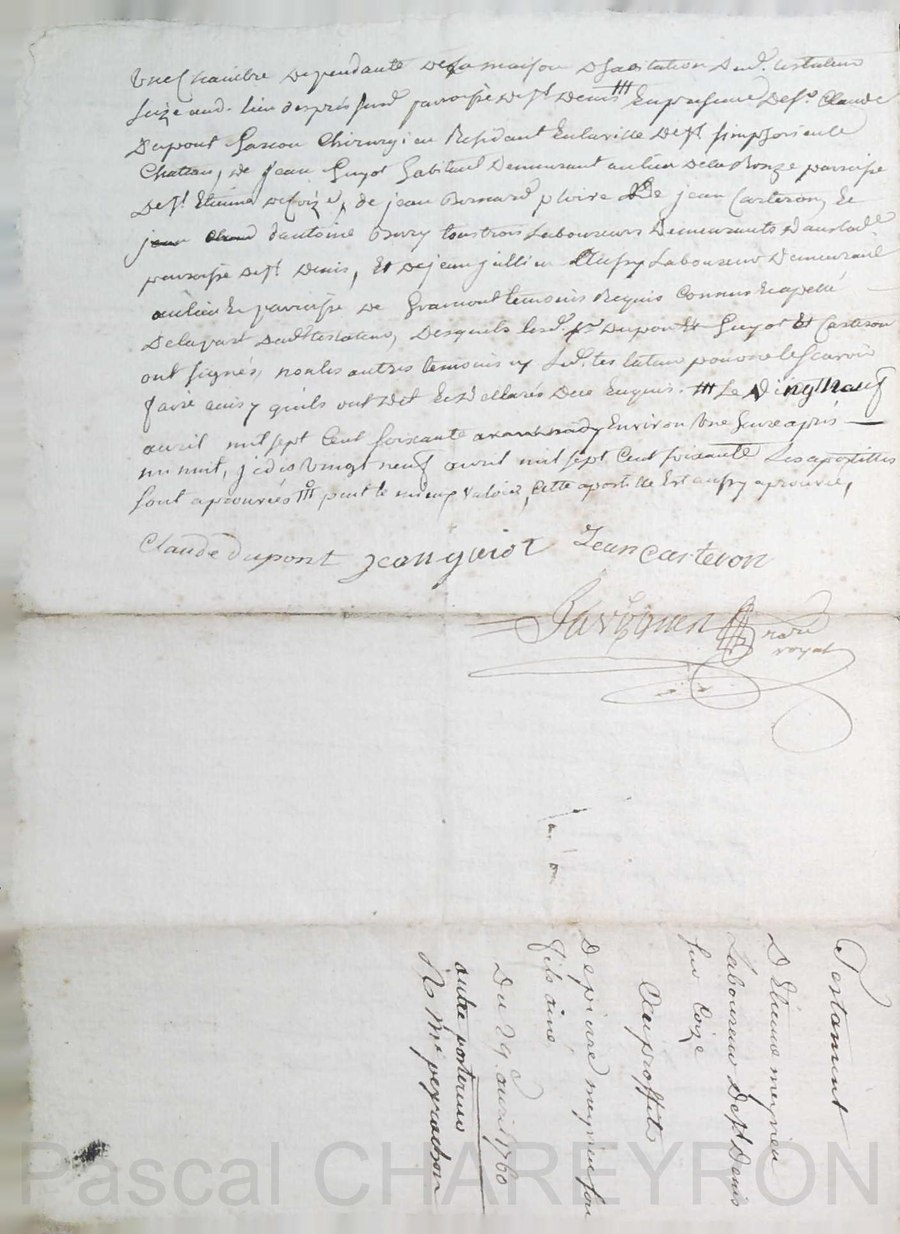 une chambre dependante de la maison d'habitation dud. testateur
size aud. lieu despres susd. parroisse de st. denis ttt en presence de sr. Claude
Dupont garcon chirurgien Residant en la ville de st simphorien le
Chateau, de jean guyot habitant demeurant au lieu de la Ronze paroisse
de st. Etienne de Coize, de jean Bernard pluire de jean Carteron, Et
d'antoine Bory tous trois Laboureurs Demeurants dans lad.
parroisse de st. Denis, Et de jean jullien Laboureur Demeurant
au lieu Et parroisse de Gramont temoins Requis Connus Et apellé
De la part dud. testateur, Desquels lesd. sr. Dupont Et guyot Et Carteron
ont signés, non les autres temoins ny led. testateur pour ne le scavoir
faire ainsy qu'ils ont dit Et Declarés De ce Enquis. ttt Le Vingt neuf
avril mil sept Cent soixante avant midy Environ une heure après
mi nuit, je dis Vingt neuf avril mil sept Cent soixante Les apostilles
sont aprouvées ttt pour le mieux valoir, Cette apostille Est aussy aprouvée,
Claude dupont jean guiot Jean Carteron
royal
Testament
D'Etienne meynieu
Laboureur De st Denis
sur Coize
Au proffit
De pierre meynieu son
fils ainé
Du 29e avril 1760
autre posterieur
Rs Me peyrachon
Pascal CHAREYRON